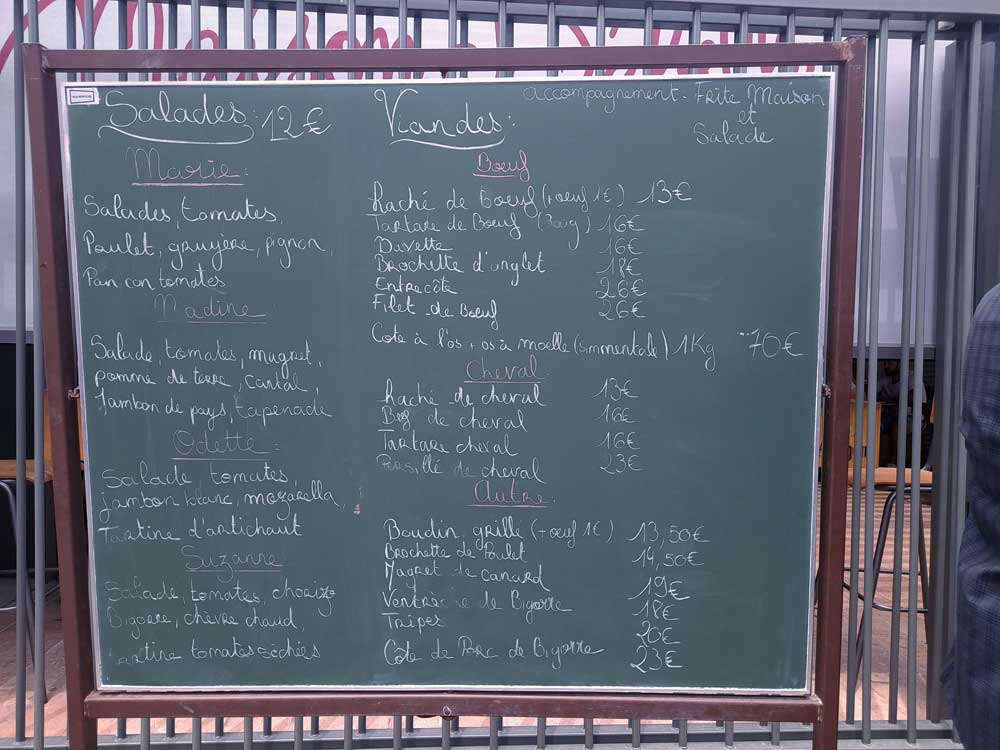 Salades: 12€
Marie.
Salades, tomates,
Poulet, gruyère, pignon,
Pan con tomates
Nadine
Salade, tomates, magret,
pomme de terre, cantal,
Jambon de pays, tapenade
Odette.
Salade tomates,
jambon blanc, mozarella,
Tartine d'artichaut
Suzanne
Salade, tomates, chorizo
Bigorre, chèvre chaud,
Tartine tomates séchées
Viandes:
accompagnement. Frite Maison
et
Salade
Bœuf
Haché de Boeuf (+ oeuf 1€) 13€
Tartare de Bœuf (300g) 16€
Bavette 16€
Brochette d'onglet 18€
Entrecôte 26€
Filet de Bœuf 26€
Cote à l'os + os à moelle (Simmentale) 1Kg 70€
Cheval
Haché de cheval 13€
de cheval 16€
Tartare cheval 16€
Persillé de cheval 23€
Autre.
Boudin grillé (+ oeuf 1€) 13,50€
Brochette de Poulet 14,50€
Magret de canard 19€
Ventrèche de Bigorre 18€
Tripes 20€
Côte de Porc de Bigorre 23€